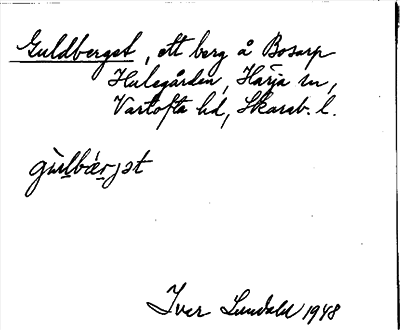 Guldberget, ett berg å Bosarp
Hulegården, Härja sn,
Vartofta hd, Skarab. l.
gùlbǽrjət
Iver Lundahl 1948